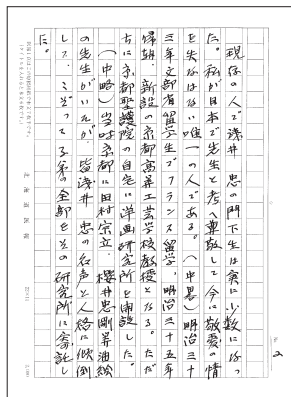 現存の人で浅井 忠の門下生は実に少数になつ
た。私が日本で先生と考へ尊敬して今に敬愛の情
を失はない唯一の人である。(中略)明治三十
三年文部省留学生でフランス留学、明治三十五年
帰朝、新設の京都高等工芸学校教授となる。ただ
ちに京都聖護院の自宅に洋画研究所を開設した。
(中略)当時京都に田村宗立、櫻井忠剛等油絵
の先生がいたが、皆浅井 忠の名声と人格に傾倒
して、こぞってる弟の全部をその研究所に寄託し
た。
No. 2
北海道医報